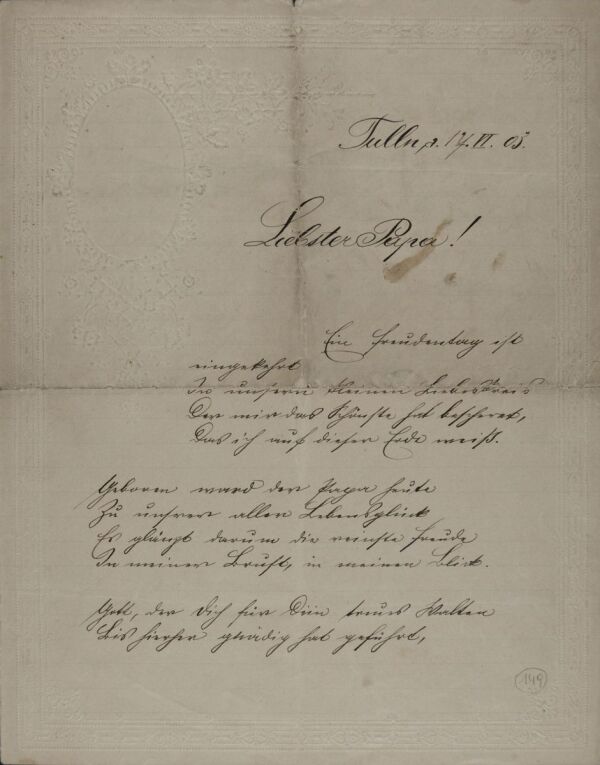 Tulln, d. 17. VI. 05.
Liebster Papa!
Ein Freudentag ist
eingekehrt
In unsern kleinen Liebeskreis
Der mir das Schönste hat bescheret,
Das ich auf dieser Erde weiß.
Geboren ward der Papa heute
Zu unsrer aller Lebensglück
Es glänzt darum die reinste Freude
In meiner Brust, in meinem Blick.
Gott, der Dich für Dein treues Walten
Bis hierher gnädig hat geführt,
149